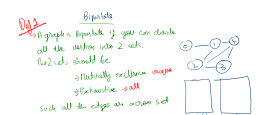 Bipartite
Def 1
→ A graph is Bipartite if you can divide
all the vertices into 2 sets.
The 2 sets should be
→ Mutually exclusive unique
→ Exhaustive → all
Such all the edges are across set
0 1 4
2 3